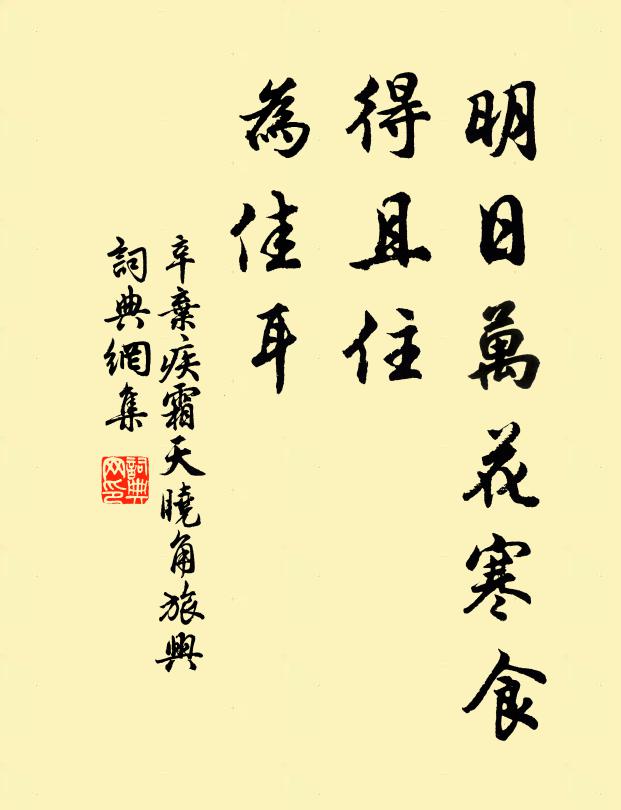 明日萬花寒食
得且住
為佳耳
辛棄疾霜天曉角旅興
詞典網集
詞典网印